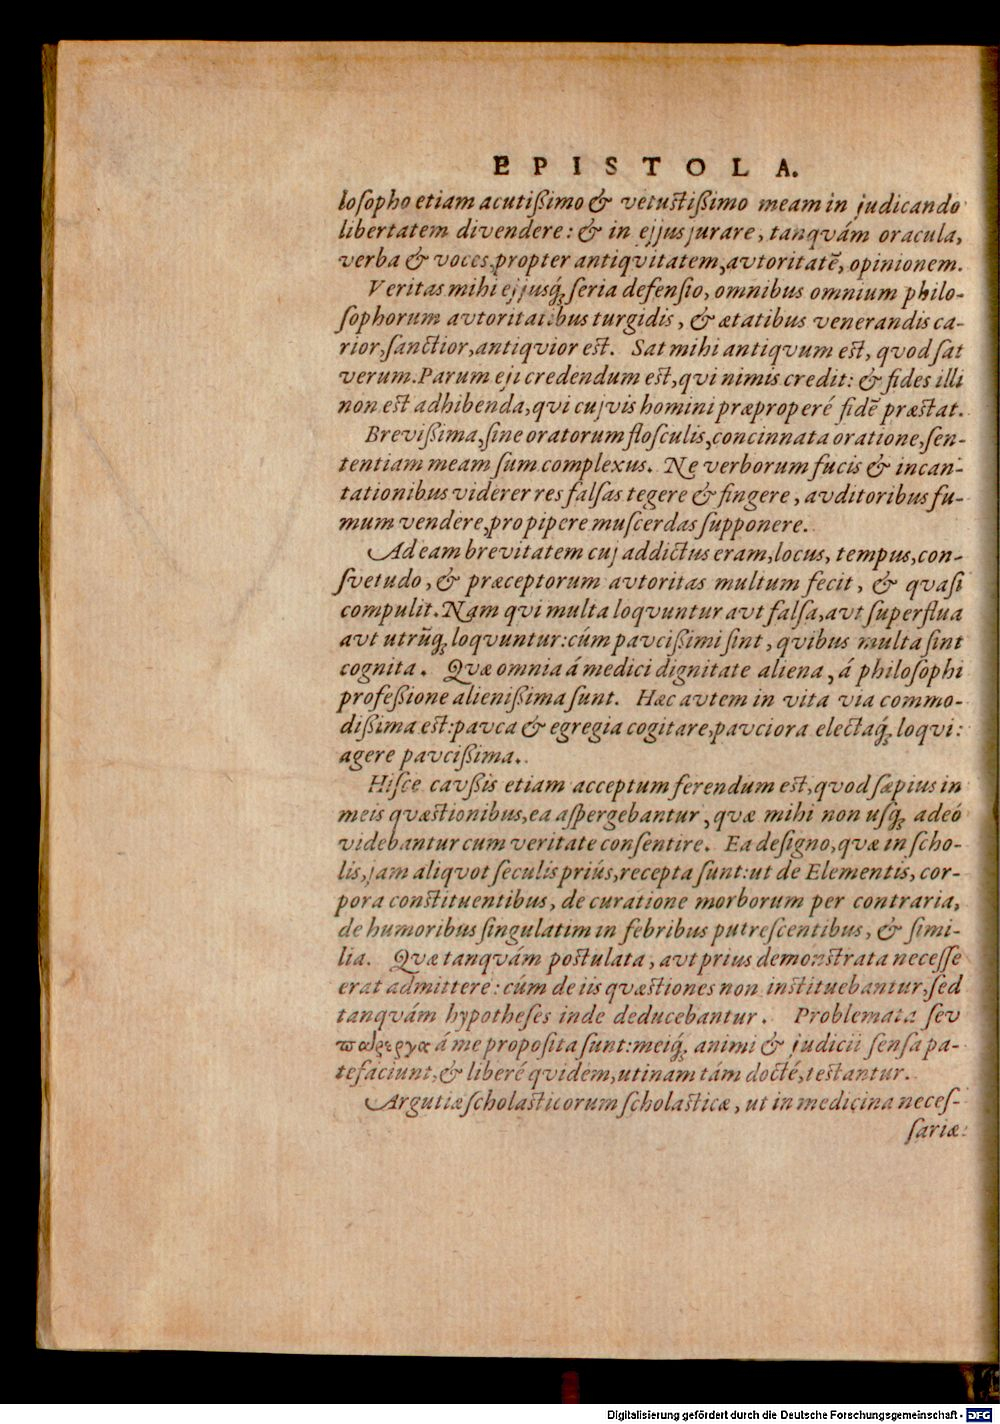 EPISTOLA.
loſopho etiam acutißimo & vetuſtißimo meam in judicando
libertatem divendere: & in ejjus jurare, tanqvám oracula,
verba & voces, propter antiqvitatem, avtoritatẽ, opinionem.
Veritas mihi ejjusq́ꝫ ſeria defenſio, omnibus omnium philo-
ſophorum avtoritatibus turgidis, & ætatibus venerandis ca-
rior, ſanctior, antiqvior eſt. Sat mihi antiqvum eſt, qvod ſat
verum. Parum eji credendum eſt, qvi nimis credit: & fides illi
non eſt adhibenda, qvi cujvis homini præproperé fidẽ præſtat.
Brevißima, ſine oratorum floſculis, concinnata oratione, ſen-
tentiam meam ſum complexus. Ne verborum fucis & incan-
tationibus viderer res falſas tegere & fingere, avditoribus fu-
mum vendere, pro pipere muſcerdas ſupponere.
Ad eam brevitatem cuj addictus eram, locus, tempus, con-
ſvetudo, & præceptorum avtoritas multum fecit, & qvaſi
compulit. Nam qvi multa loqvuntur avt falſa, avt ſuperflua
avt utrũq́ꝫ loqvuntur: cúm pavcißimi ſint, qvibus multa ſint
cognita. Qvæ omnia á medici dignitate aliena, á philoſophi
profeßione alienißima ſunt. Hæc avtem in vita via commo-
dißima eſt: pavca & egregia cogitare, pavciora electaq́ꝫ loqvi:
agere pavcißima.
Hiſce cavßis etiam acceptum ferendum eſt, qvod ſæpius in
meis qvæſtionibus, ea aſpergebantur, qvæ mihi non uſq́ꝫ adeó
videbantur cum veritate conſentire. Ea deſigno, qvæ in ſcho-
lis, jam aliqvot ſeculis priús, recepta ſunt: ut de Elementis, cor-
pora conſtituentibus, de curatione morborum per contraria,
de humoribus ſingulatim in febribus putreſcentibus, & ſimi-
lia. Qvæ tanqvám poſtulata, avt prius demonſtrata neceſſe
erat admittere: cúm de iis qvæſtiones non inſtituebantur, ſed
tanqvám hypotheſes inde deducebantur. Problemata ſev
πάρεργα á me propoſita ſunt: meiq́ꝫ animi & judicii ſenſa pa-
tefaciunt, & liberé qvidem, utinam tám docté, teſtantur.
Argutiæ ſcholaſticorum ſcholaſticæ, ut in medicina neceſ-
ſariæ:
Digitalisierung gefördert durch die Deutsche Forschungsgemeinschaft - DFG